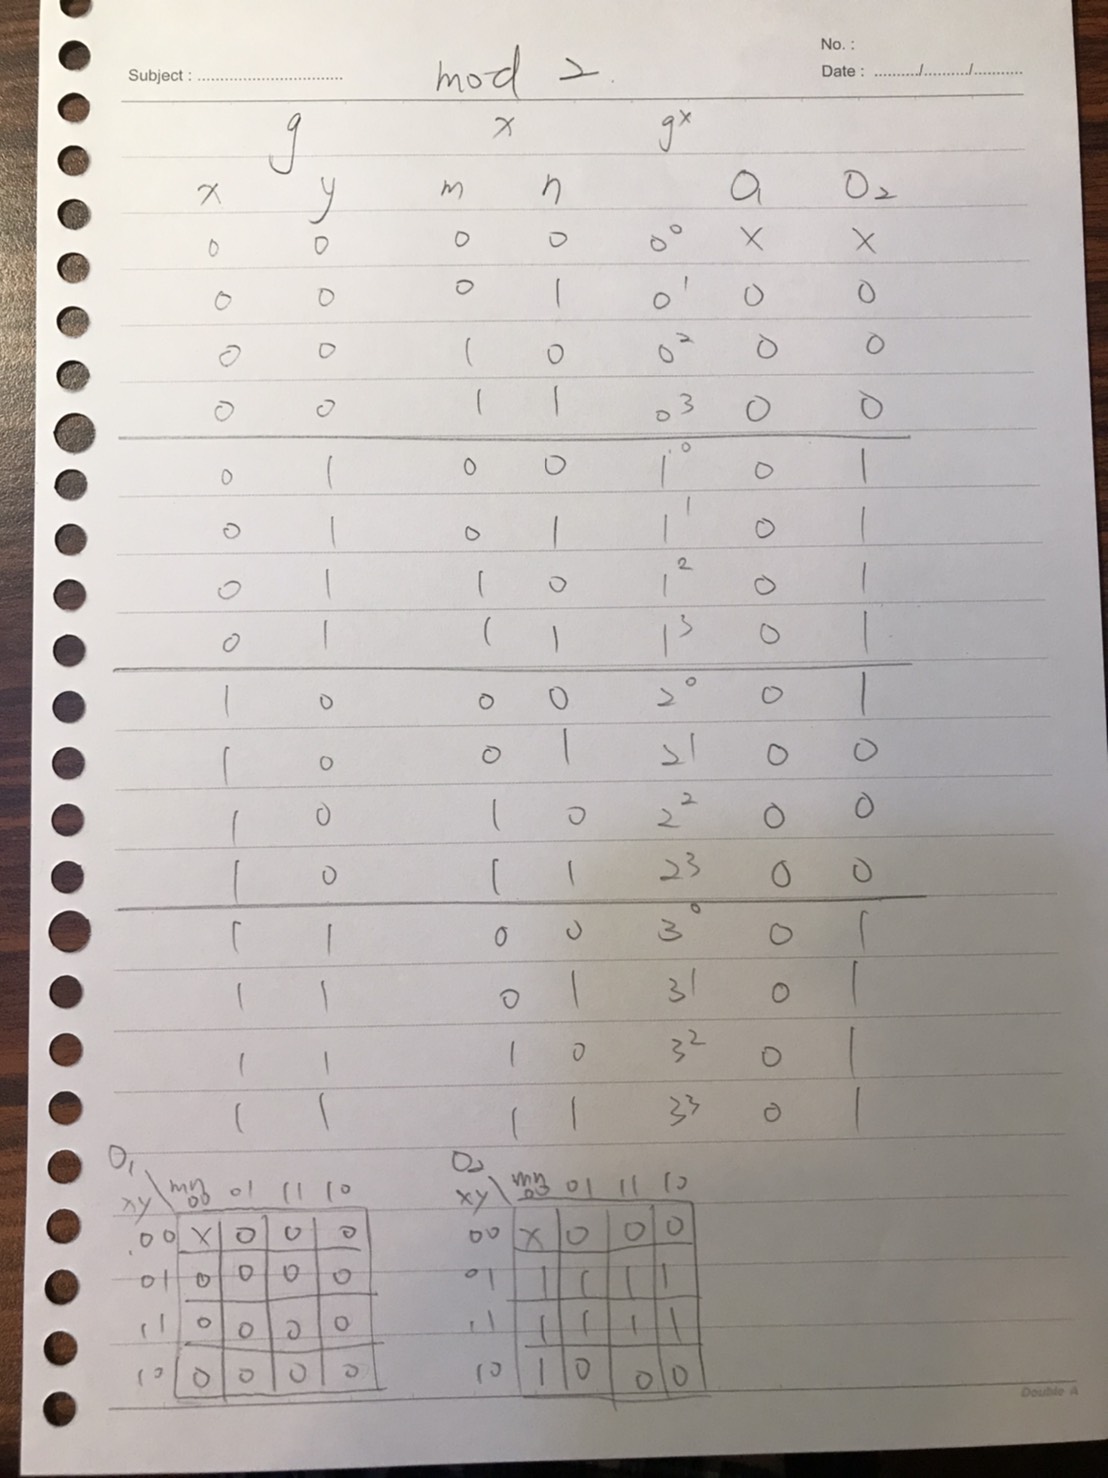 No. :
Subject : mod 2
Date : ........./........./...........
g x gˣ
x y m n O₁ O₂
0 0 0 0 0⁰ X X
0 0 0 1 0¹ 0 0
0 0 1 0 0² 0 0
0 0 1 1 0³ 0 0
0 1 0 0 1⁰ 0 1
0 1 0 1 1¹ 0 1
0 1 1 0 1² 0 1
0 1 1 1 1³ 0 1
1 0 0 0 2⁰ 0 1
1 0 0 1 2¹ 0 0
1 0 1 0 2² 0 0
1 0 1 1 2³ 0 0
1 1 0 0 3⁰ 0 1
1 1 0 1 3¹ 0 1
1 1 1 0 3² 0 1
1 1 1 1 3³ 0 1
O₁
xy\mn 00 01 11 10
00 X 0 0 0
01 0 0 0 0
11 0 0 0 0
10 0 0 0 0
O₂
xy\mn 00 01 11 10
00 X 0 0 0
01 1 1 1 1
11 1 1 1 1
10 1 0 0 0
Double A